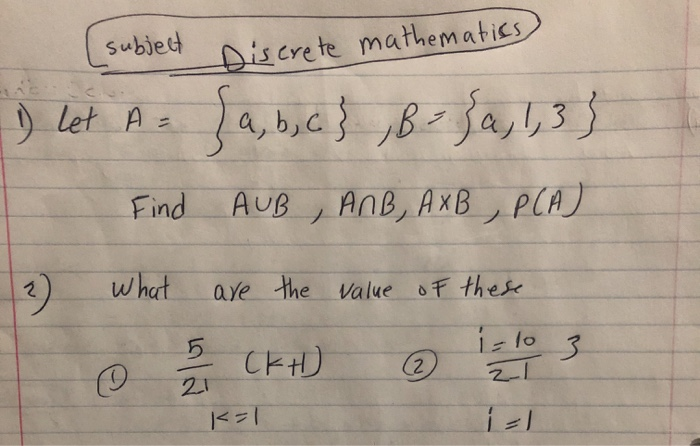 subject Discrete mathematics
1) Let A = {a, b, c}, B = {a, 1, 3}
Find A∪B, A∩B, A×B, P(A)
2) What are the value of these
① 5/21 (k+1) ② i=10/21 3
k=1 i=1